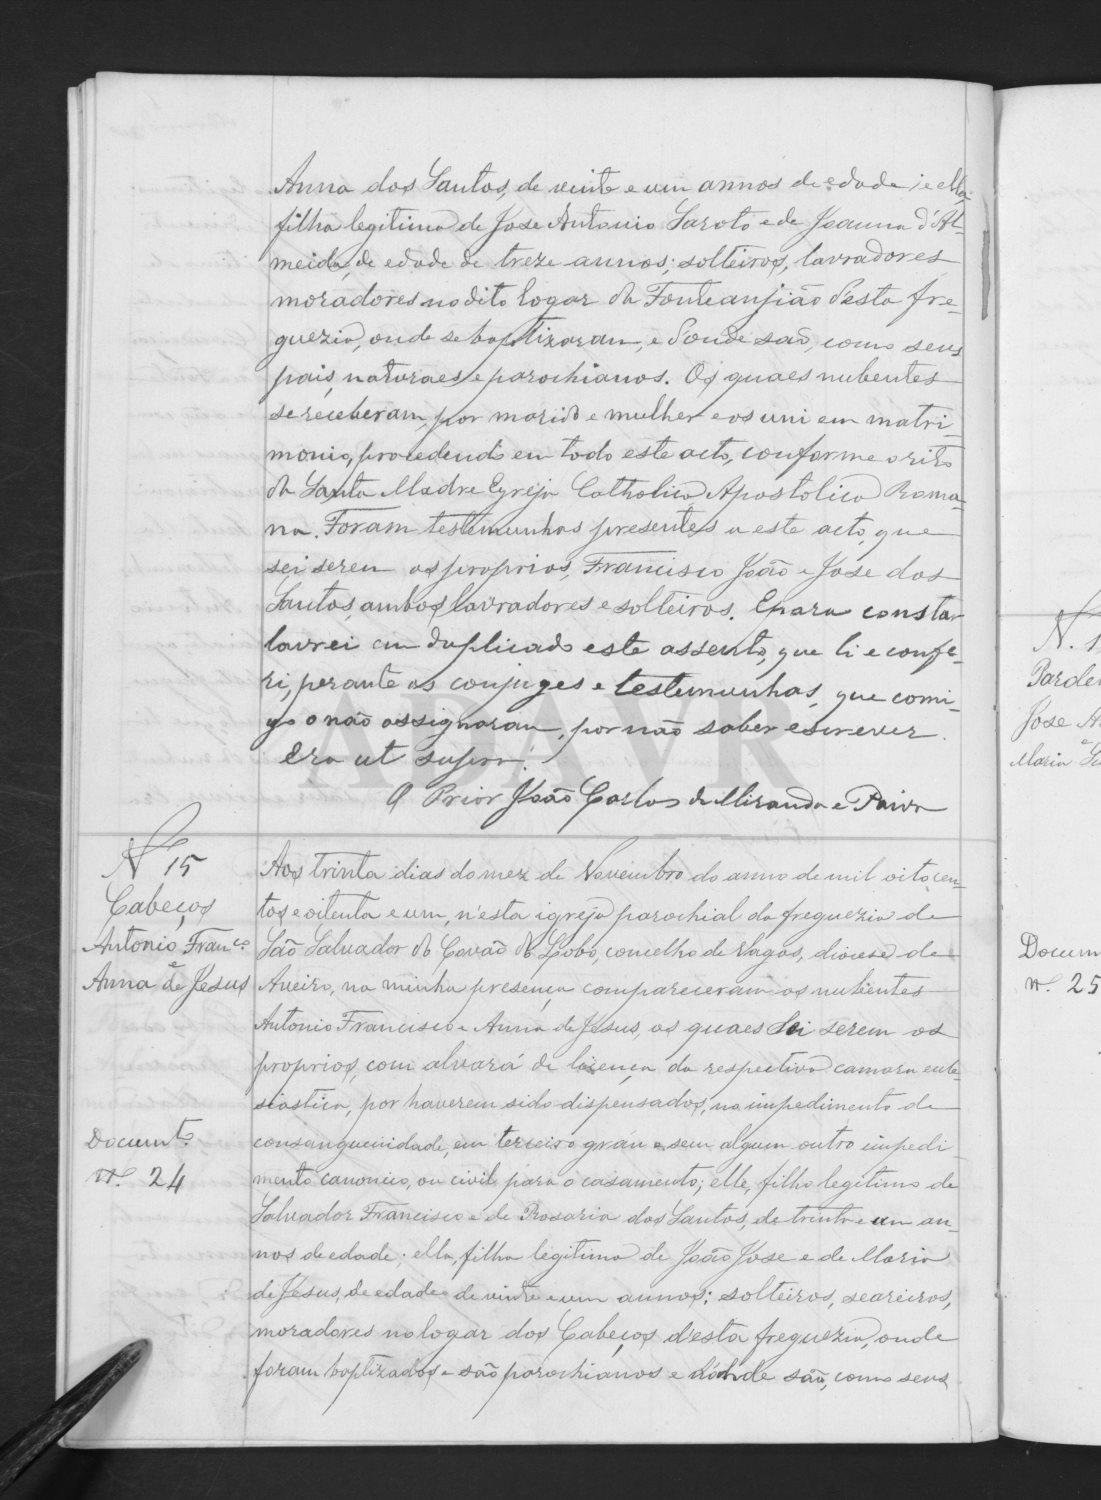 Anna dos Santos, de vinte e um annos de edade; e ella,
filha legitima de Jose Antonio Saroto e de Joanna d'Al-
meida, de edade de treze annos; solteiros, lavradores
moradores no dito logar da Fonteanjião desta fre-
guezia, onde se baptizaram, e donde são, como seus
pais, naturaes e parochianos. Os quaes nubentes
se receberam, por marido e mulher e os uni em matri-
monio, procedendo em todo este acto, conforme o rito
da Santa Madre Egreja Catholica Apostolica Roma-
na. Foram testemunhas presentes a este acto, que
sei serem os proprios, Francisco João e Jose dos
Santos, ambos lavradores e solteiros. E para constar
lavrei em duplicado este assento, que li e confe-
ri, perante os conjuges e testemunhas, que comi-
go o não assignaram, por não saber escrever.
Era ut supra.
O Prior João Carlos de Miranda e Paiva
ADAVR
Nº 15
Cabeços
Antonio Franco.
e
Anna de Jesus
Documto.
nº. 24
Aos trinta dias do mez de Novembro do anno de mil oitocen-
tos e oitenta e um, n'esta igreja parochial da freguezia de
São Salvador do Covão do Lobo, concelho de Vagos, diocese de
Aveiro, na minha presença compareceram os nubentes
Antonio Francisco e Anna de Jesus, os quaes sei serem os
proprios, com alvará de licença da respectiva camara eccle-
siastica, por haverem sido dispensados, no impedimento de
consanguinidade, em terceiro gráu e sem algum outro impedi-
mento canonico, ou civil para o casamento; elle, filho legitimo de
Salvador Francisco e de Rosaria dos Santos, de trinta e um an-
nos de edade; ella, filha legitima de João Jose e de Maria
de Jesus, de edade de vinte e um annos; solteiros, seareiros,
moradores no logar dos Cabeços d'esta freguezia, onde
foram baptizados e são parochianos e donde são, como seus
N. 1
Jose
Maria
Docum
nº. 25